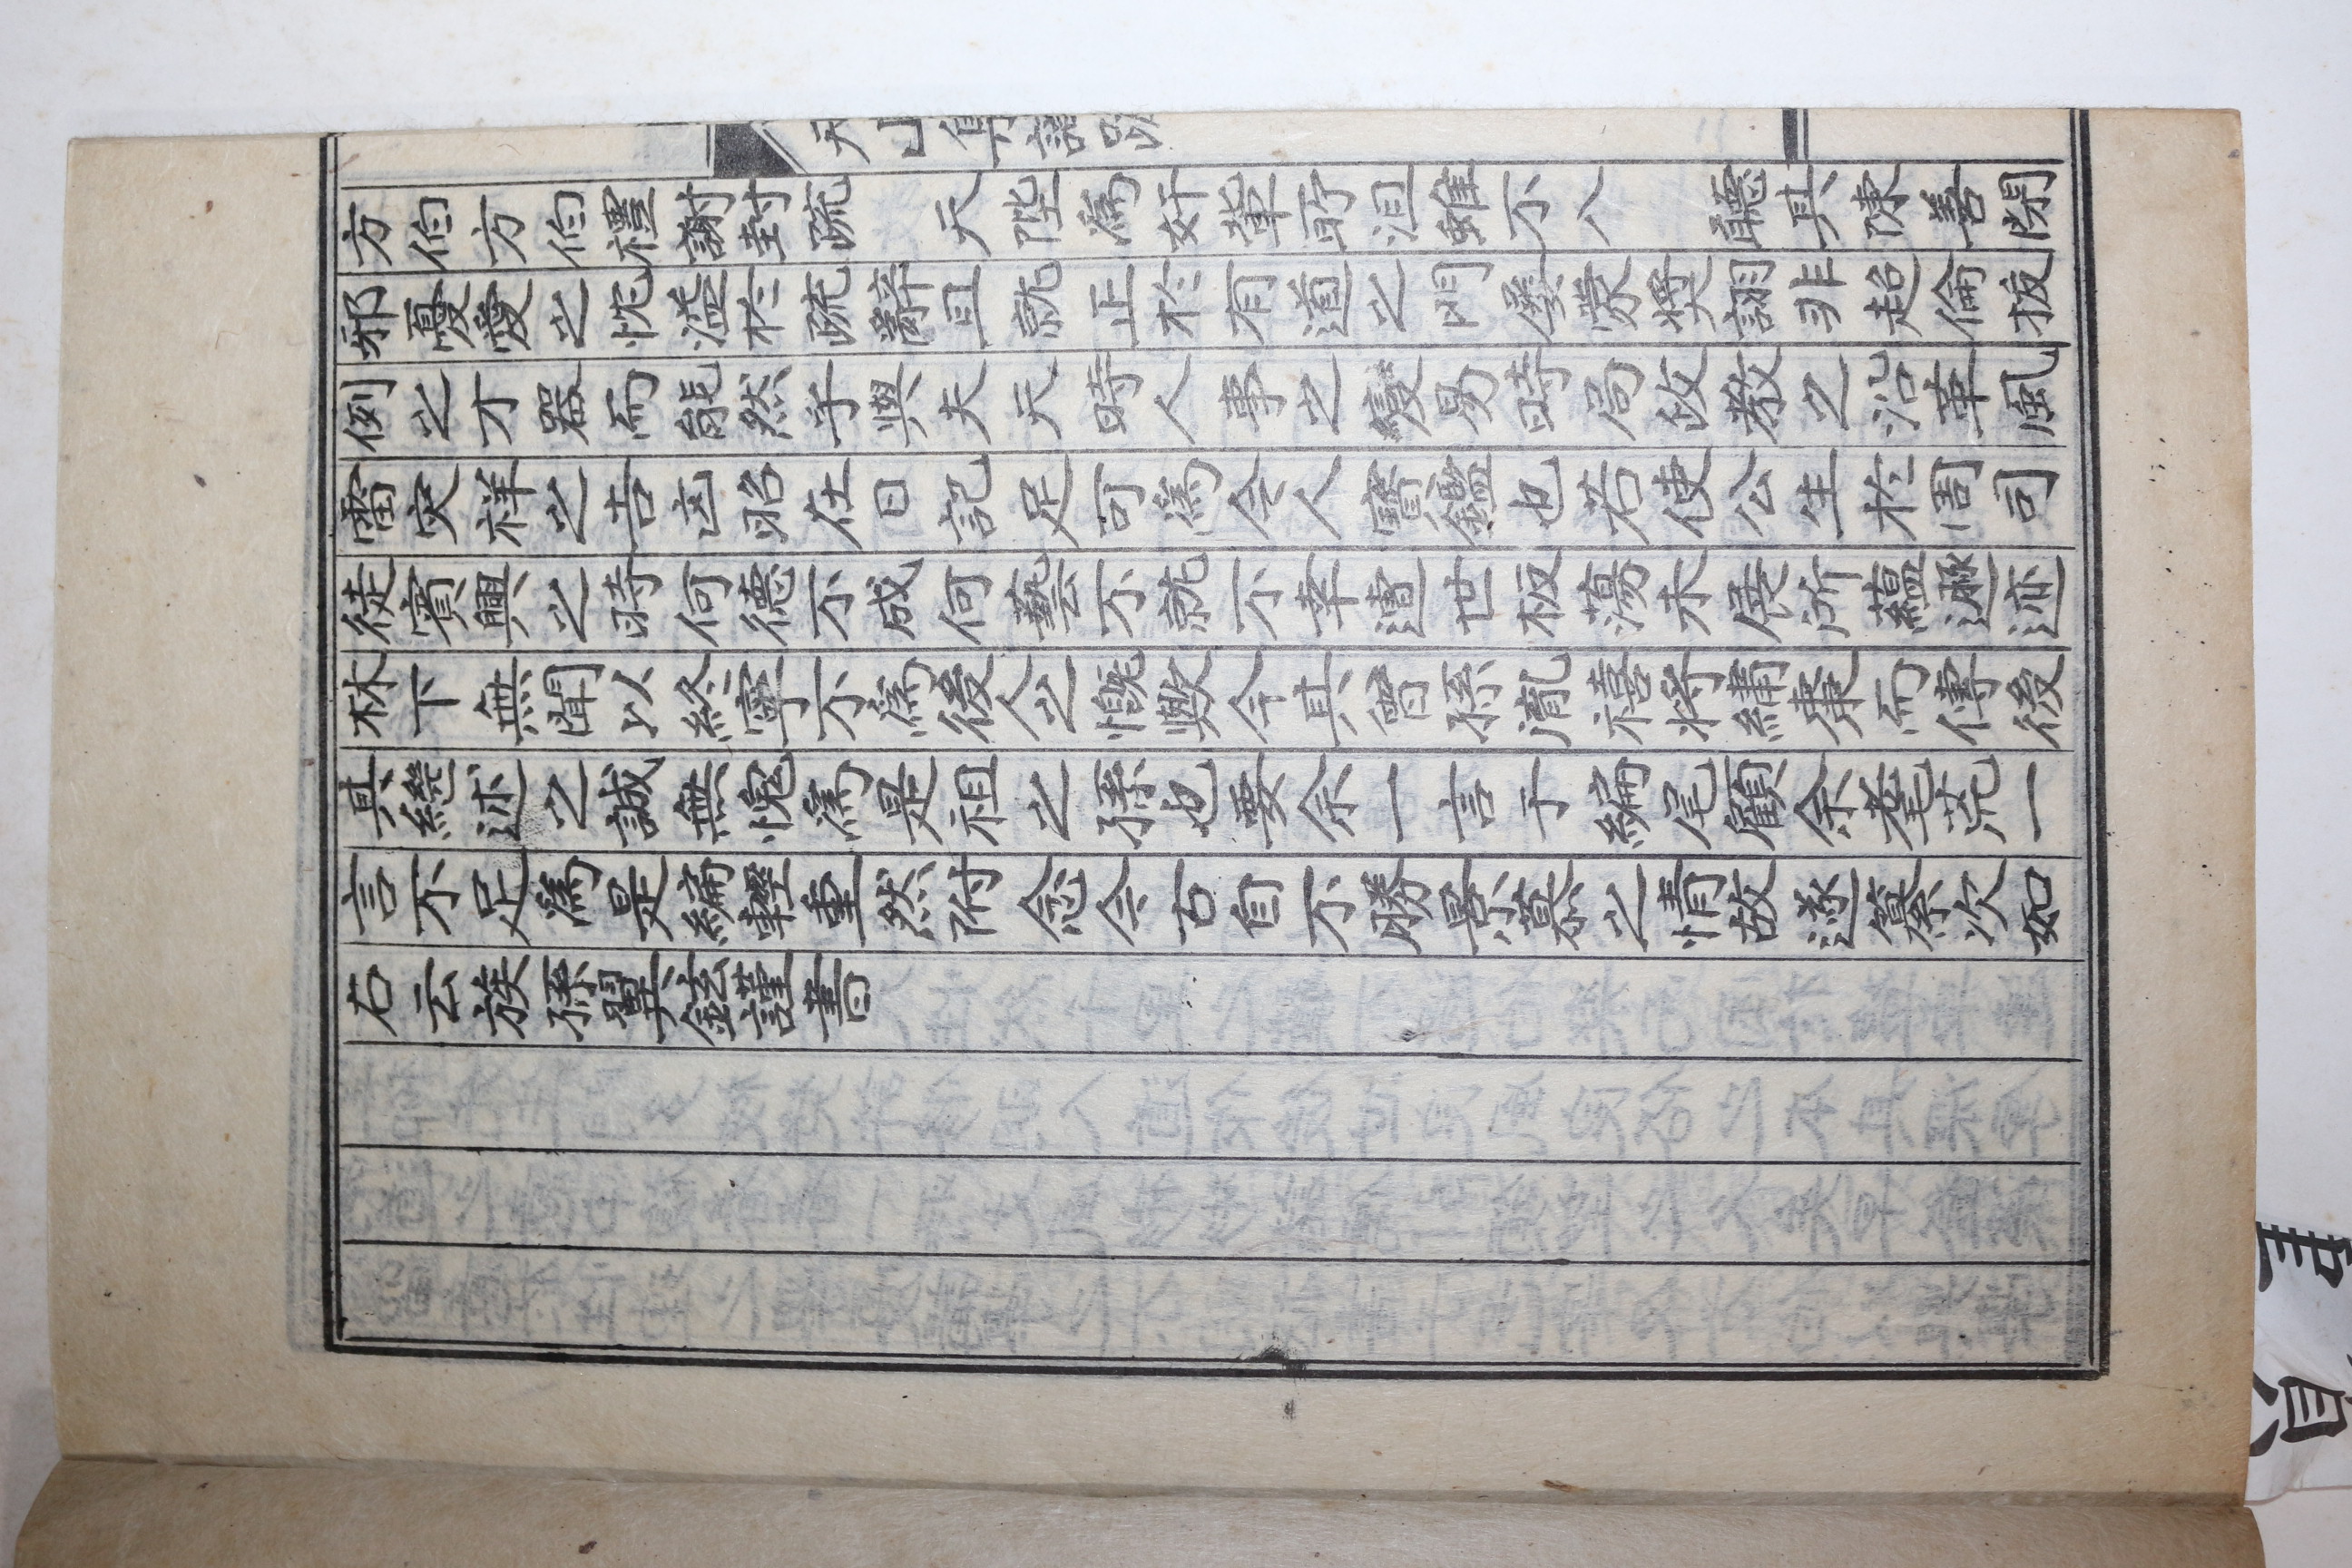 方伯方伯禮謝封疏 天陛爲奸輩所沮雖不入 聽其陳善閉
邪憂愛之忱溢於疏辭且就正於有道之門屢蒙奬詡非超倫拔
例之才器而能然乎與夫天時人事之變易時局政教之沿革風
雷灾祥之吉凶昭在日記足可爲令人寶鑑也若使公生於周司
徒賓興之時何德不成何藝不就不幸遭世板蕩未展所蘊遯迹
林下無聞以終寧不爲後人之慨歟今其曾孫胤禧將繡棗而傳後
其繼述之誠無愧爲是祖之孫也要余一言于編尾顧余耄荒一
言不足爲是編輕重然附念今古自不勝景慕之情故遂纂次如
右云族孫翼鉉謹書
天山集